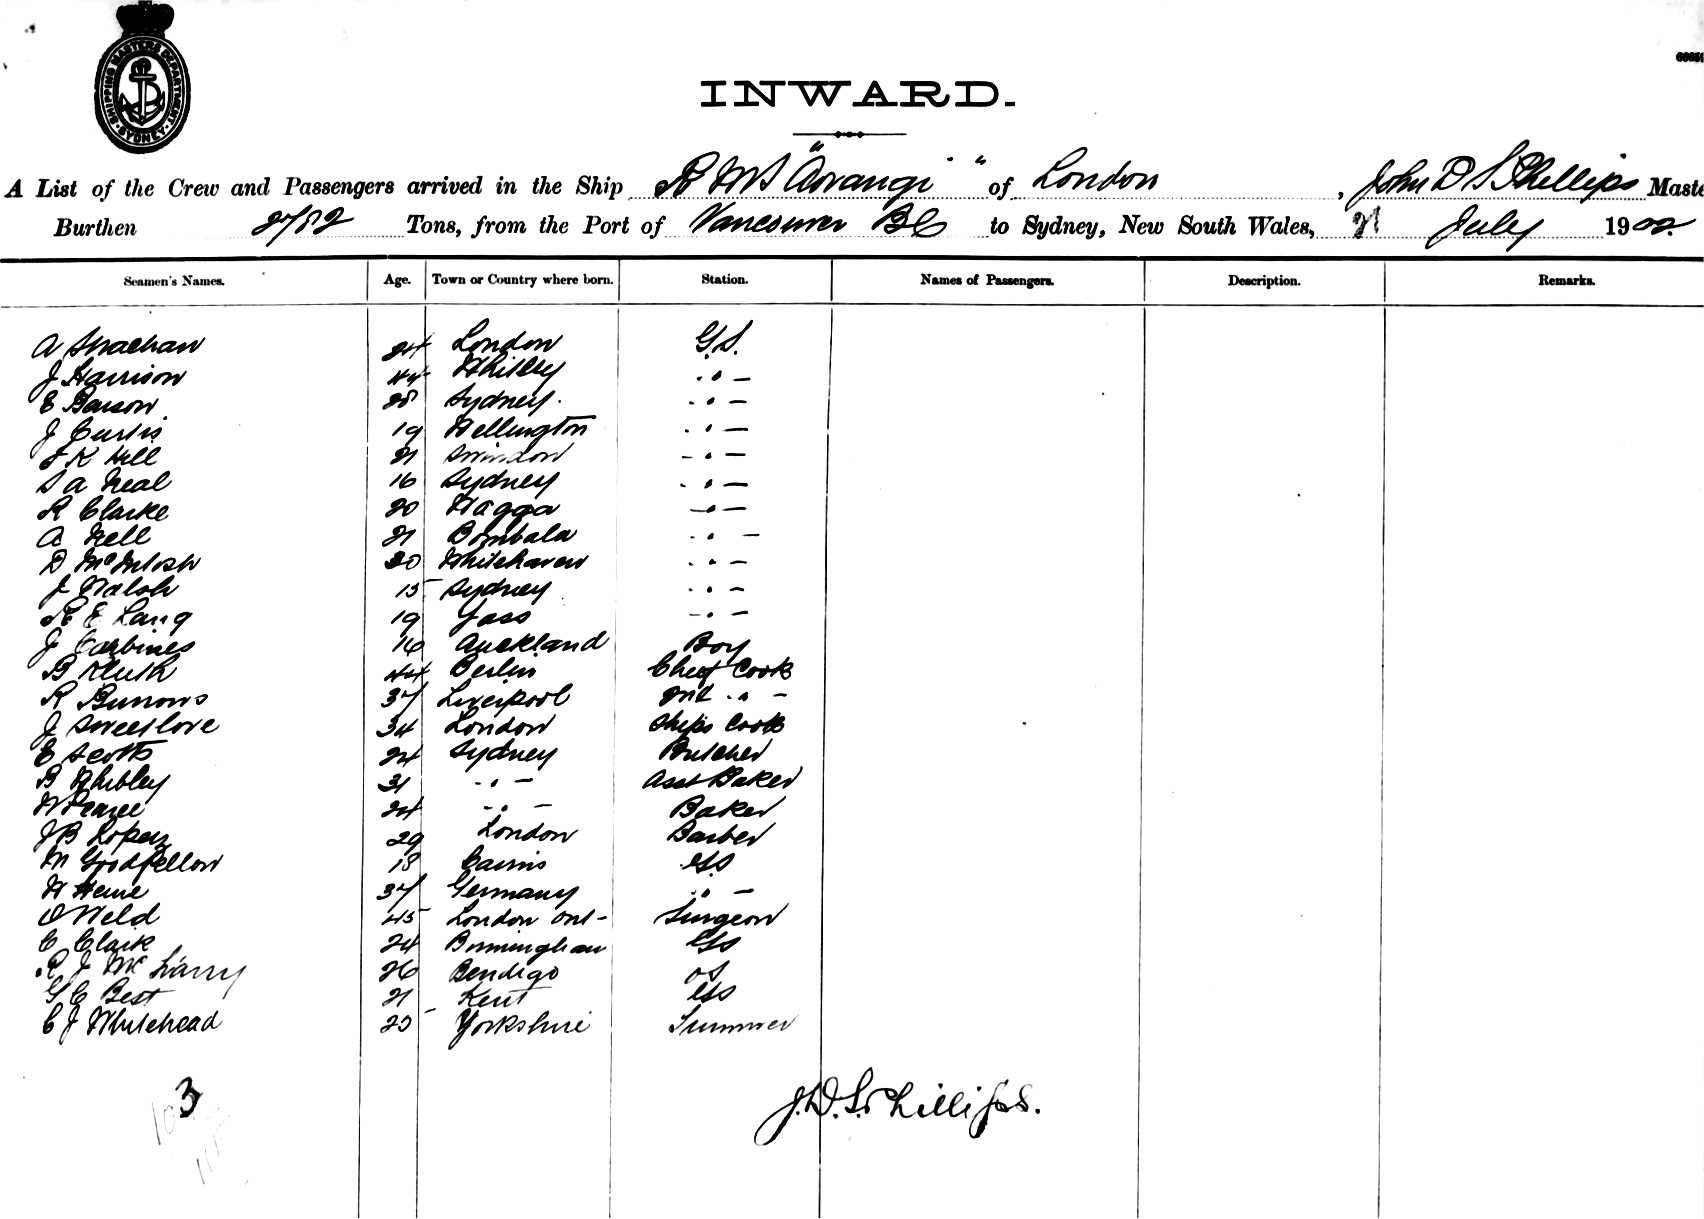 SHIPPING MASTERS DEPARTMENT SYDNEY
INWARD.
A List of the Crew and Passengers arrived in the Ship R M S "Aorangi" of London, John D S Phillips Maste
Burthen 2782 Tons, from the Port of Vancouver BC to Sydney, New South Wales, 21 July 1900.
Seamen's Names. Age. Town or Country where born. Station. Names of Passengers. Description. Remarks.
A Strachan 24 London G.S.
J Harrison 44 Whitby " -
E Barson 28 Sydney. " -
J Curtis 19 Wellington " -
K Hill 21 Swindon - " -
S A Neal 16 Sydney " -
R Clarke 20 Wagga - " -
A Nell 21 Bombala " -
D McIntosh 20 Whitehaven " -
J Walsh 15 Sydney " -
R E Lang 19 Yass - " -
J Carbines 16 Auckland Boy
B Kluth 44 Berlin Chief Cook
R Burrows 37 Liverpool 2nd " -
J Sweetlove 34 London Ships Cook
E Scott 24 Sydney Butcher
B Whibley 31 " - Asst Baker
W Pearce 24 " - Baker
J B Lopez 29 London Barber
M Goodfellow 18 Cairns GS
W Heine 37 Germany " -
O Weld 45 London Ont - Surgeon
C Clark 24 Birmingham GS
R J Mc Larry 26 Bendigo OS
G C Best 21 Kent GS
C J Whitehead 25 Yorkshire Trimmer
103
J.D.S. Phillips.